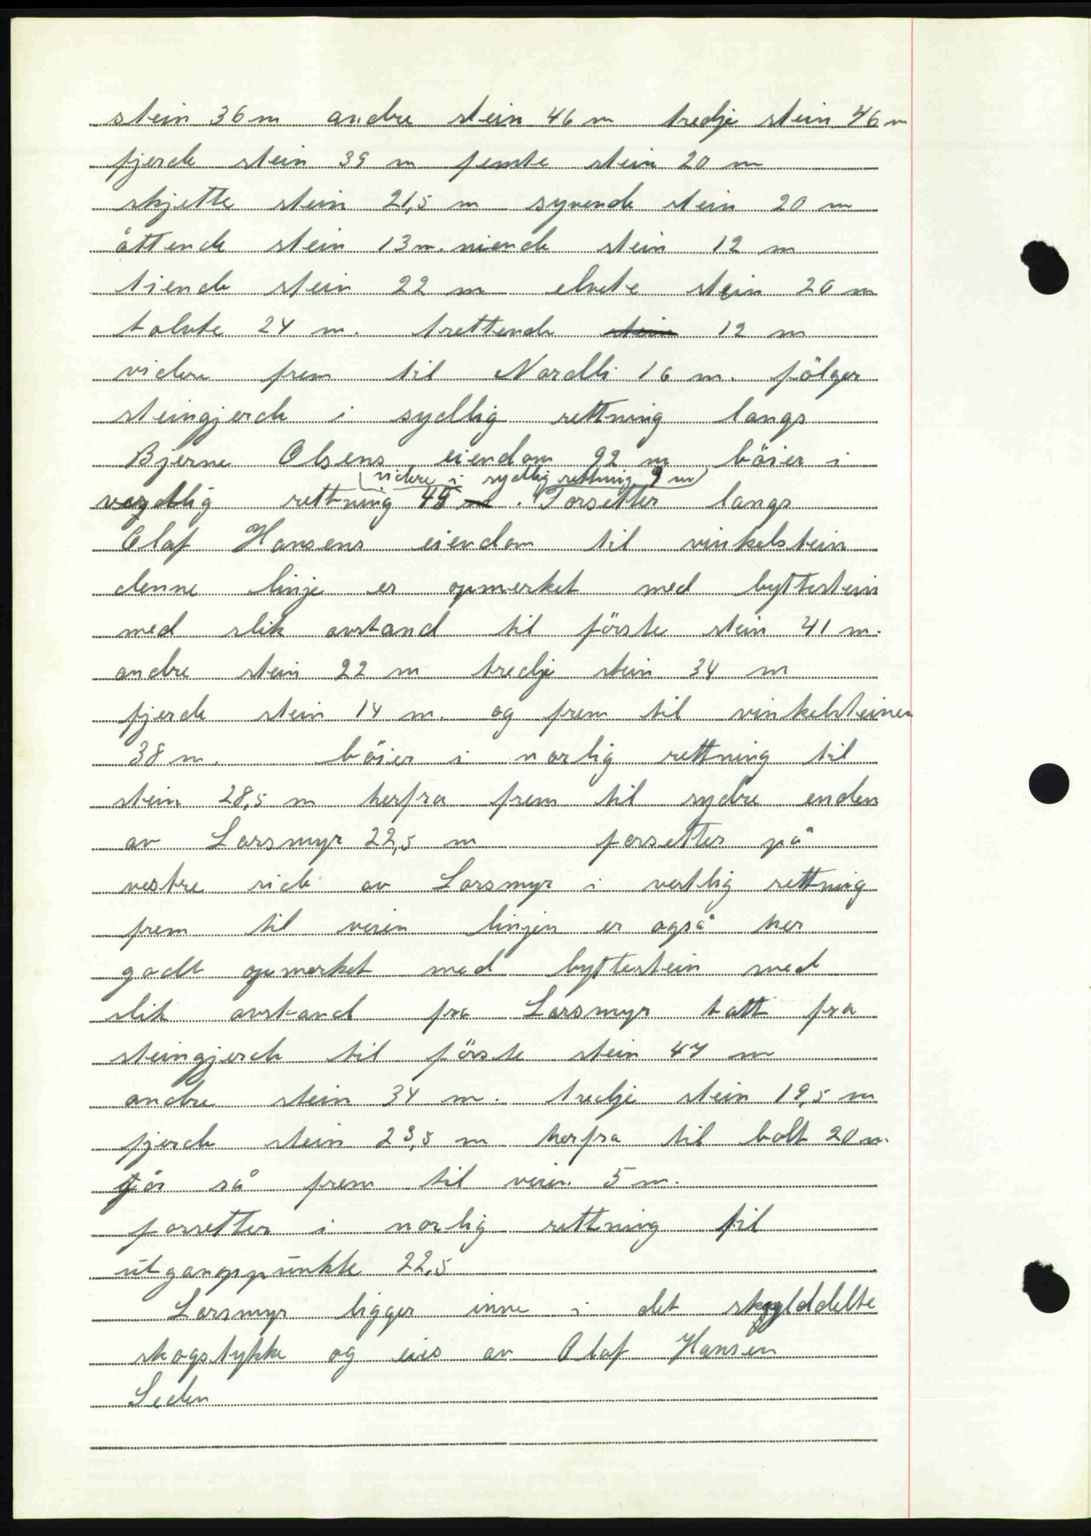 stein 36 m andre stein 46 m tredje stein 46 m
fjerde stein 39 m femte stein 20 m
skjette stein 21,5 m syvende stein 20 m
åttende stein 13 m. niende stein 12 m
tiende stein 22 m elvete stein 20 m
tolvte 24 m. trettende stein 12 m
videre frem til Nordli 16 m. fölger
steingjerde i sydlig rettning langs
Bjerne Olsens eiendom 92 m böier i
videre i sydlig rettning 9 m
rettning 48 m. Forsetter langs
Olaf Hansens eiendom til vinkelstein
denne linje er opmerket med byttestein
med slik avstand til förste stein 41 m.
andre stein 22 m tredje stein 34 m
fjerde stein 14 m. og frem til vinkelsteinen
38 m. böier i norlig rettning til
stein 28,5 m herfra frem til sydre enden
av Larsmyr 22,5 m forsetter på
vestre side av Larsmyr i vestlig rettning
frem til veien linjen er også her
godt opmerket med byttestein med
slik avstand fra Larsmyr tatt fra
steingjerde til förste stein 47 m
andre stein 34 m. tredje stein 19,5 m
fjerde stein 23,5 m herfra til bolt 20 m.
går så frem til veien 5 m.
forsetter i norlig rettning til
utgangspunkte 22,5
Larsmyr ligger inne i det skylddelte
skogstykke og eies av Olaf Hansen
Leden